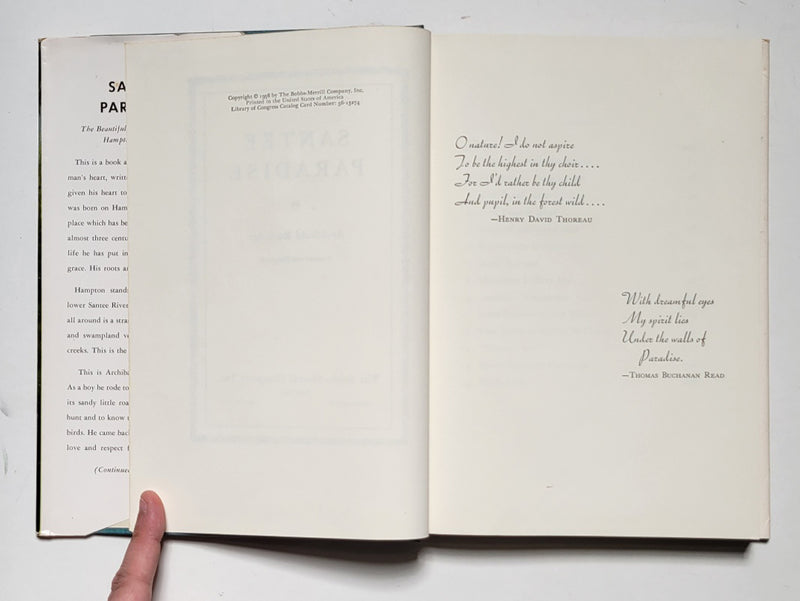 SA
PAR
The Beautiful
Hampt
This is a book a
man's heart, writt
given his heart to
was born on Ham
place which has be
almost three centu
life he has put in
grace. His roots a
Hampton stand
lower Santee River
all around is a stra
and swampland v
creeks. This is the
This is Archiba
As a boy he rode to
its sandy little roa
hunt and to know
birds. He came bac
love and respect f
(Continue
Copyright © 1958 by The Bobbs-Merrill Company, Inc.
Printed in the United States of America
Library of Congress Catalog Card Number:
SANTEE
PARADISE
O nature! I do not aspire
To be the highest in thy choir....
For I'd rather be thy child
And pupil, in the forest wild....
—Henry David Thoreau
With dreamful eyes
My spirit lies
Under the walls of
Paradise.
—Thomas Buchanan Read